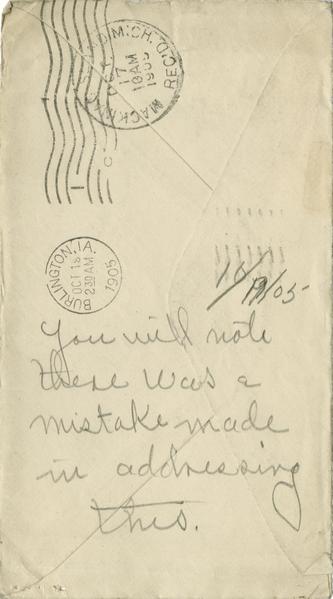 MACKINAC ISLAND, MICH. REC'D.
OCT
17
10 AM
1905
BURLINGTON, IA.
OCT 18
230 AM
1905
10/19/05
You will note
there was a
mistake made
in addressing
this.